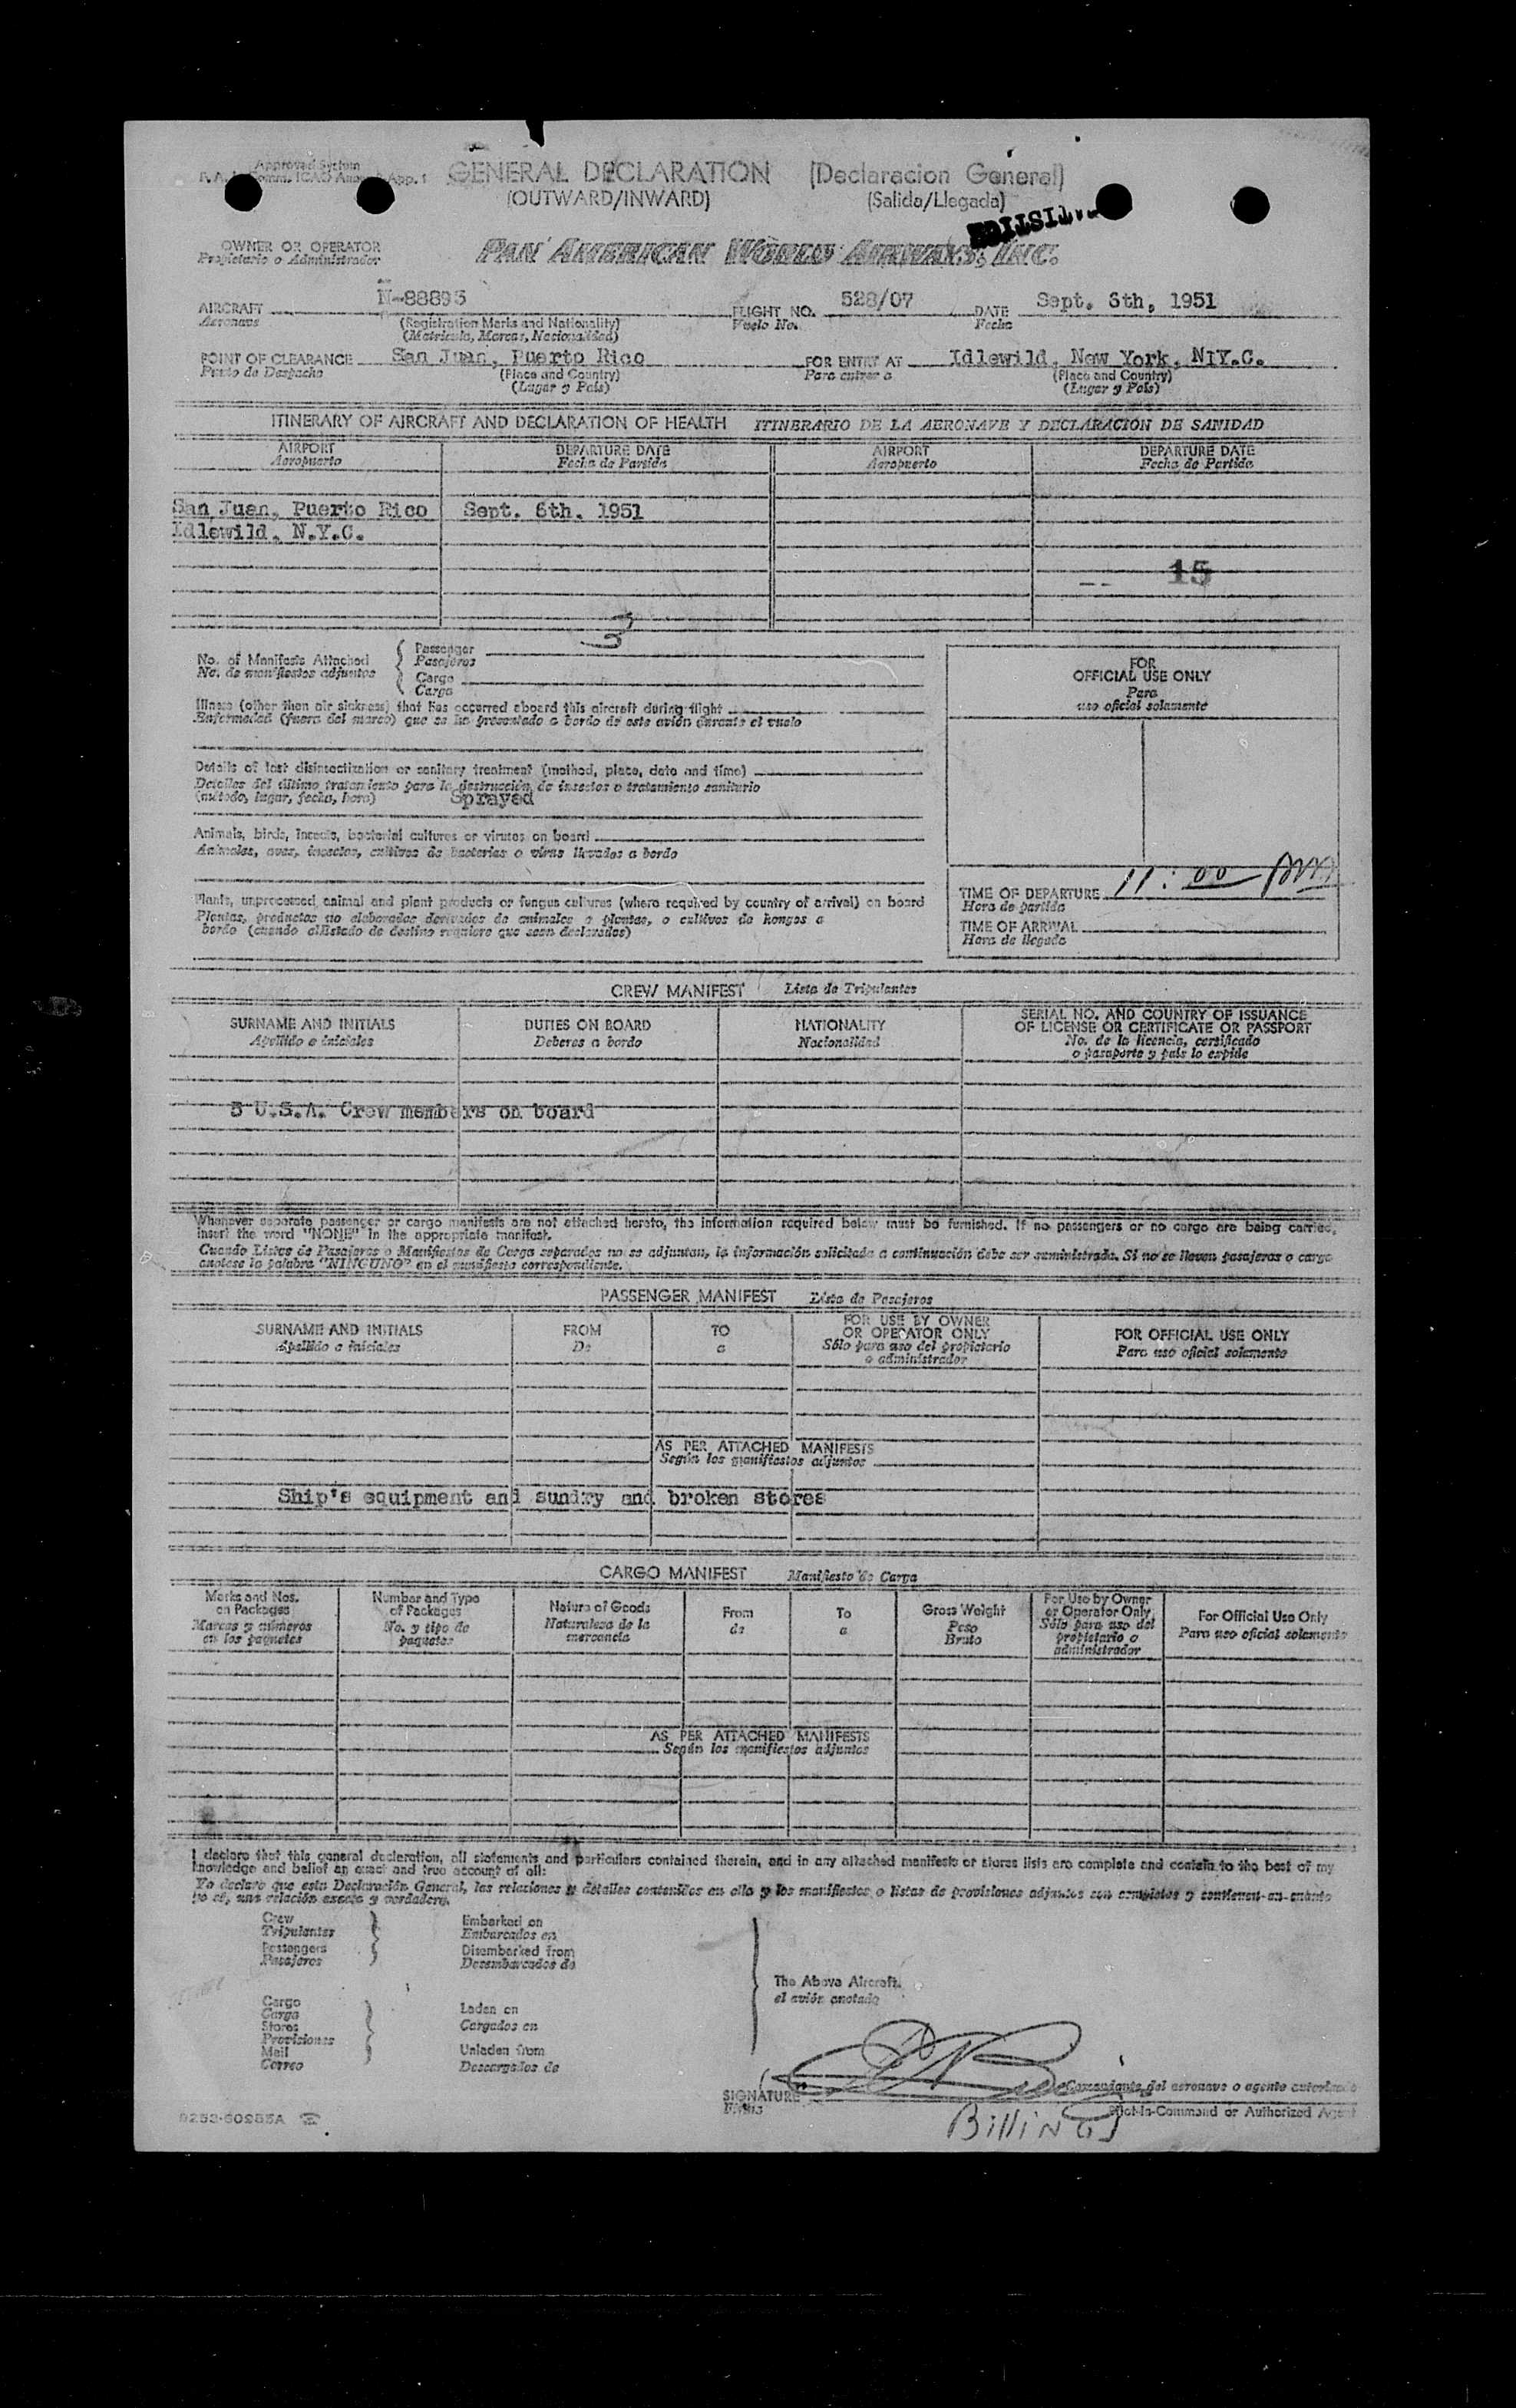 Approved System
GENERAL DECLARATION (Declaracion General)
(OUTWARD/INWARD) (Salida/Llegada)
OWNER OR OPERATOR
Propietario o Administrador
PAN AMERICAN WORLD AIRWAYS, INC.
AIRCRAFT N-88893 FLIGHT NO. 528/07 DATE Sept. 6th, 1951
Aeronave (Registration Marks and Nationality) Vuelo No. Fecha
(Matricula, Marcas, Nacionalidad)
POINT OF CLEARANCE San Juan, Puerto Rico FOR ENTRY AT Idlewild, New York, NIY.C.
Punto de Despacho (Place and Country) Para entrar a (Place and Country)
(Lugar y País) (Lugar y País)
ITINERARY OF AIRCRAFT AND DECLARATION OF HEALTH ITINERARIO DE LA AERONAVE Y DECLARACION DE SANIDAD
AIRPORT DEPARTURE DATE AIRPORT DEPARTURE DATE
Aeropuerto Fecha de Partida Aeropuerto Fecha de Partida
San Juan, Puerto Rico Sept. 6th. 1951
Idlewild, N.Y.C.
15
No. of Manifests Attached
No. de manifiestos adjuntos
Passenger
Pasajeros
Cargo
Carga
FOR
OFFICIAL USE ONLY
Para
uso oficial solamente
Illness (other than air sickness) that has occurred aboard this aircraft during flight
Enfermedad (fuera del mareo) que se ha presentado a bordo de este avión durante el vuelo
Details of last disinsectization or sanitary treatment (method, place, date and time)
Detalles del último tratamiento para la destrucción de insectos o tratamiento sanitario
(método, lugar, fecha, hora) Sprayed
Animals, birds, insects, bacterial cultures or viruses on board
Animales, aves, insectos, cultivos de bacterias o virus llevados a bordo
Plants, unprocessed animal and plant products or fungus cultures (where required by country of arrival) on board
Plantas, productos no elaborados derivados de animales o plantas, o cultivos de hongos a
bordo (cuando el Estado de destino requiere que sean declarados)
TIME OF DEPARTURE 11:00 PM
Hora de partida
TIME OF ARRIVAL
Hora de llegada
CREW MANIFEST Lista de Tripulantes
SURNAME AND INITIALS DUTIES ON BOARD NATIONALITY SERIAL NO. AND COUNTRY OF ISSUANCE
OF LICENSE OR CERTIFICATE OR PASSPORT
Apellido e iniciales Deberes a bordo Nacionalidad No. de la licencia, certificado
o pasaporte y país lo expide
5 U.S.A. Crew members on board
Whenever separate passenger or cargo manifests are not attached hereto, the information required below must be furnished. If no passengers or no cargo are being carried,
insert the word "NONE" in the appropriate manifest.
Cuando Listas de Pasajeros o Manifiestos de Carga separados no se adjuntan, la información solicitada a continuación debe ser suministrada. Si no se llevan pasajeros o carga
anótese la palabra "NINGUNO" en el manifiesto correspondiente.
PASSENGER MANIFEST Lista de Pasajeros
SURNAME AND INITIALS FROM TO FOR USE BY OWNER
OR OPERATOR ONLY FOR OFFICIAL USE ONLY
Apellido e iniciales De a Sólo para uso del propietario
o administrador Para uso oficial solamente
AS PER ATTACHED MANIFESTS
Según los manifiestos adjuntos
Ship's equipment and sundry and broken stores
CARGO MANIFEST Manifiesto de Carga
Marks and Nos.
on Packages
Marcas y números
en los paquetes
Number and Type
of Packages
No. y tipo de
paquetes
Nature of Goods
Naturaleza de la
mercancía
From
de
To
a
Gross Weight
Peso
Bruto
For Use by Owner
or Operator Only
Sólo para uso del
propietario o
administrador
For Official Use Only
Para uso oficial solamente
AS PER ATTACHED MANIFESTS
Según los manifiestos adjuntos
I declare that this general declaration, all statements and particulars contained therein, and in any attached manifests or stores lists are complete and contain to the best of my
knowledge and belief an exact and true account of all:
Yo declaro que esta Declaración General, las relaciones y detalles contenidos en ella y los manifiestos o listas de provisiones adjuntos son completos y contienen en cuanto
yo sé, una relación exacta y verdadera.
Crew
Tripulantes
Passengers
Pasajeros
Embarked on
Embarcados en
Disembarked from
Desembarcados de
The Above Aircraft.
el avión anotado
Cargo
Carga
Stores
Provisiones
Mail
Correo
Laden on
Cargados en
Unladen from
Descargados de
SIGNATURE Comandante del aeronave o agente autorizado
Firma Pilot-in-Command or Authorized Agent
Billings